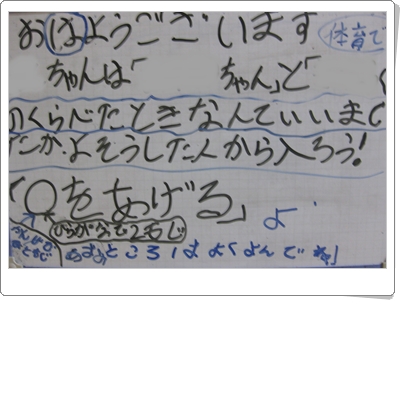 おはようございます
体育で
ちゃんは「 ちゃん」と「
のくらべたときなんていいまし
たか.よそうした人から入ろう!
「○をあげる」
よ
ひらがなで2もじ
ところはよくよんでね」